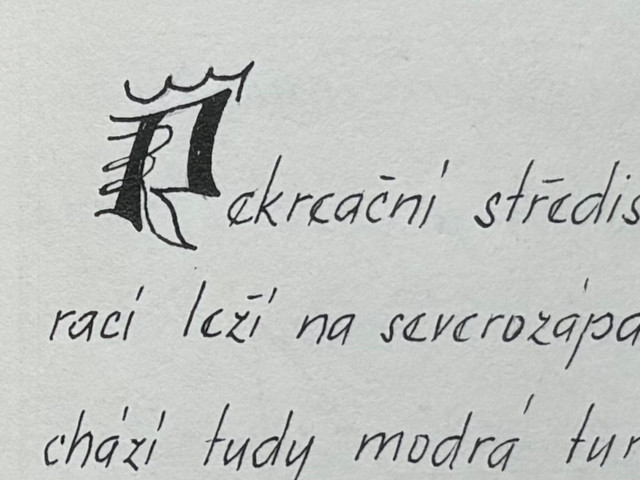 Rekreační středis
rací leží na severozápa
chází tudy modrá tur